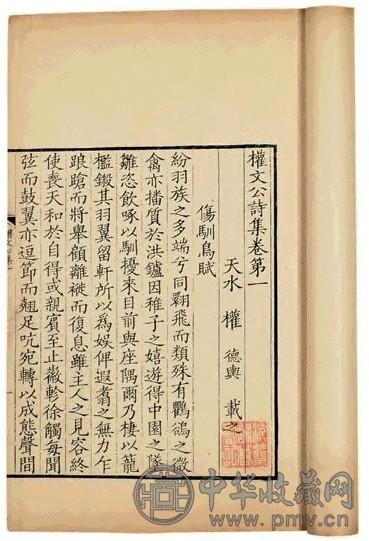 權文公詩集卷第一
天水 權 德輿 載之
傷馴鳥賦
紛羽族之多端兮同翾飛而類殊有鸜鵒之微
禽亦播質於洪鑪因稚子之嬉遊得中園之墜
雛恣飲啄以馴擾來目前與座隅爾乃棲以籠
檻鎩其羽翼留軒所以為娛俾遐翥之無力乍
踉蹌而將舉顧離褷而復息雖主人之見容終
使喪天和於自得或親賓至止徽軫徐觸每聞
弦而鼓翼亦逗節而翹足吭宛轉以成態聲間
中华收藏网
www.pmv.cn